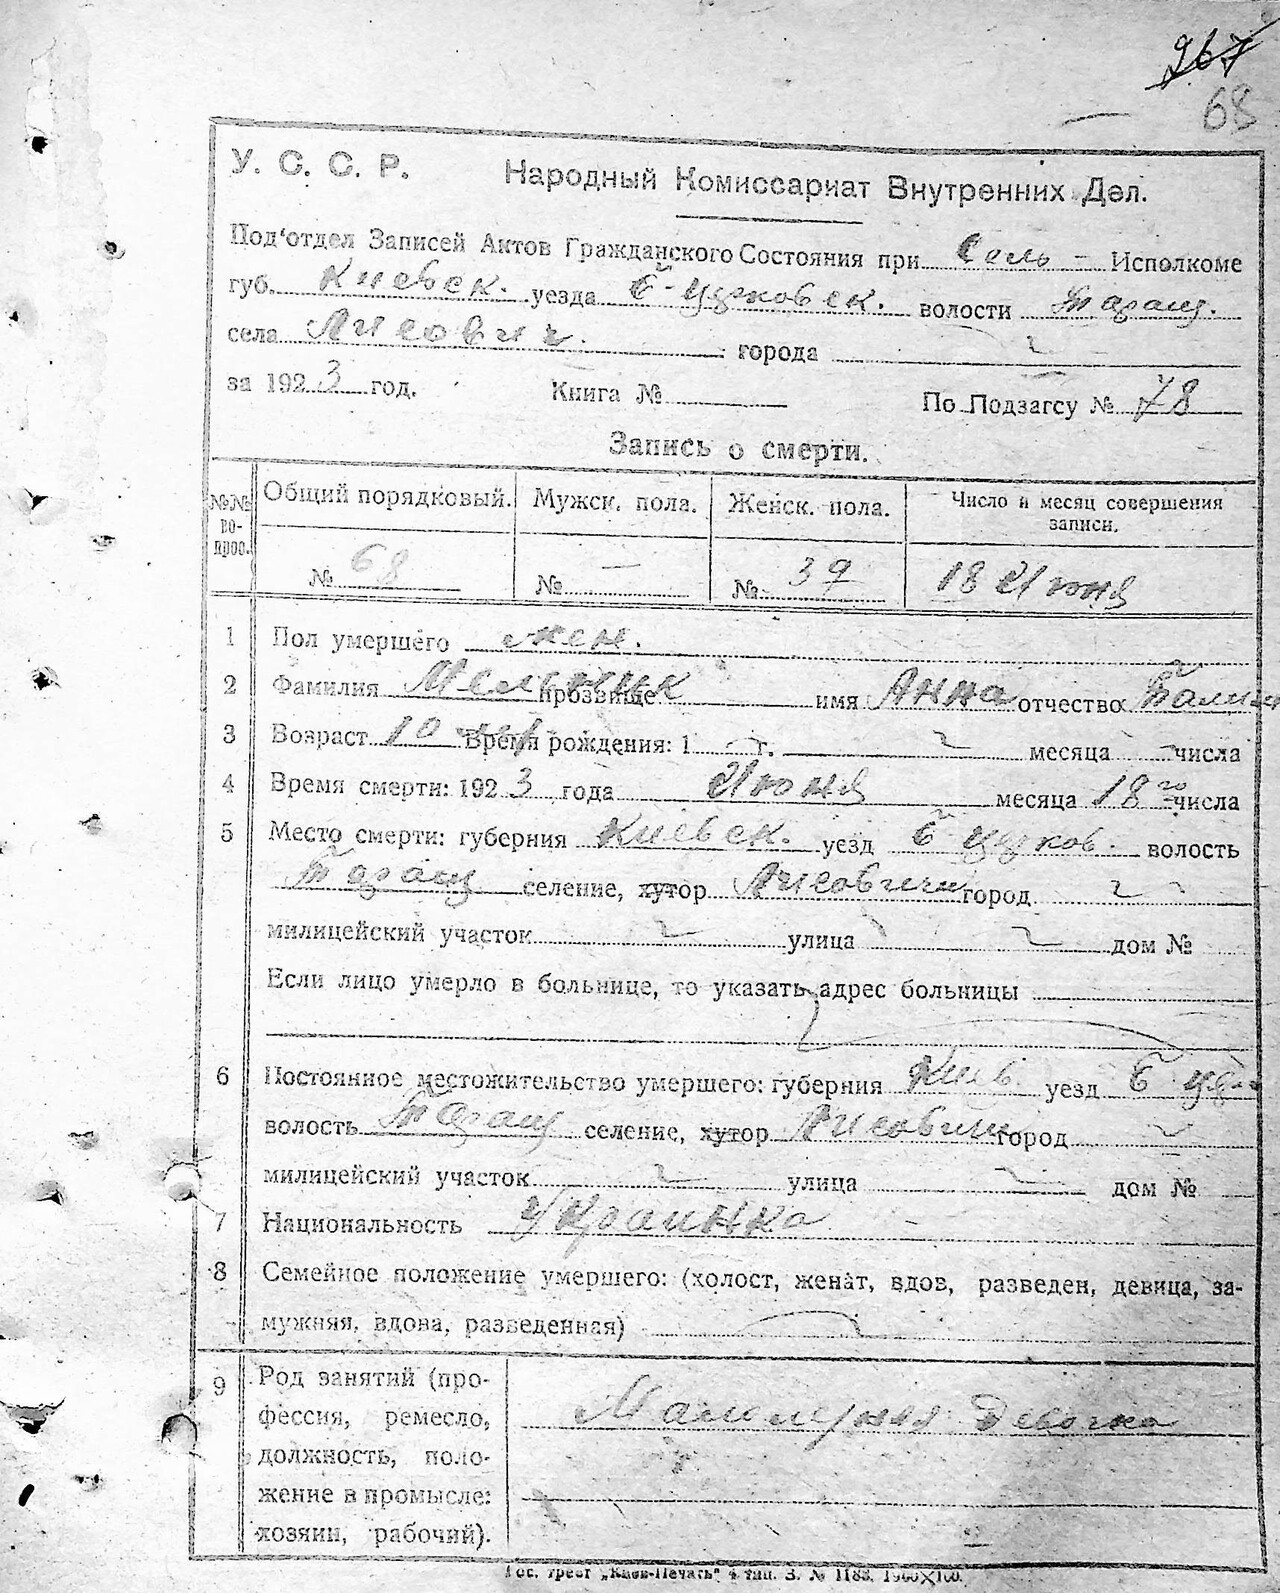 967
68
У. С. С. Р. Народный Комиссариат Внутренних Дел.
Под'отдел Записей Актов Гражданского Состояния при Сель- Исполкоме
губ. Киевск. уезда Б-Церковск. волости Таращ.
села Лисович. города
за 1923 год. Книга № По Подзагсу № 78
Запись о смерти.
№№ во-прос. Общий порядковый. Мужск. пола. Женск. пола. Число и месяц совершения записи.
№ 68 № — № 39 18 Июня
1 Пол умершего жен.
2 Фамилия Мельник прозвище имя Анна отчество
3 Возраст 10 Время рождения: 1 г. месяца числа
4 Время смерти: 1923 года Июня месяца 18го числа
5 Место смерти: губерния Киевск. уезд Б Церков. волость
Таращ селение, хутор Лисовичи город
милицейский участок улица дом №
Если лицо умерло в больнице, то указать адрес больницы
6 Постоянное местожительство умершего: губерния Киев уезд Б Цер
волость Таращ селение, хутор Лисовичи город
милицейский участок улица дом №
7 Национальность Украинка
8 Семейное положение умершего: (холост, женат, вдов, разведен, девица, за-
мужняя, вдова, разведенная)
9 Род занятий (про-
фессия, ремесло, Малолетняя Девочка
должность, поло-
жение в промысле:
хозяин, рабочий).
Гос. трест „Киев-Печать" 4 тип. З. № 1183. 1900×100.